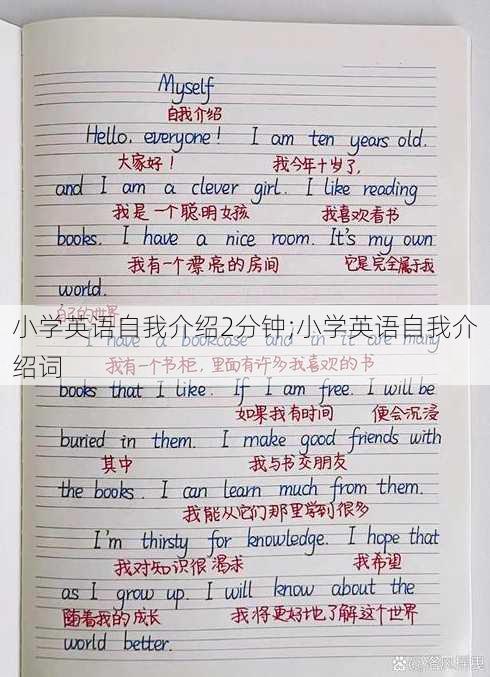 Myself
自我介绍
Hello, everyone! I am ten years old.
大家好！ 我今年十岁了,
and I am a clever girl. I like reading
我是一个聪明女孩 我喜欢看书
books. I have a nice room. It's my own
我有一个漂亮的房间 它是完全属于我
world.
自己的世界
小学英语自我介绍2分钟;小学英语自我介
绍词
I have a bookcase and in it are many
我有一个书柜，里面有许多我喜欢的书
books that I like. If I am free. I will be
如果我有时间 便会沉浸
buried in them. I make good friends with
其中 我与书交朋友
the books. I can learn much from them.
我能从它们那里学到很多
I'm thirsty for knowledge. I hope that
我对知识很渴求 我希望
as I grow up. I will know about the
随着我的成长 我将更好地了解这个世界
world better.